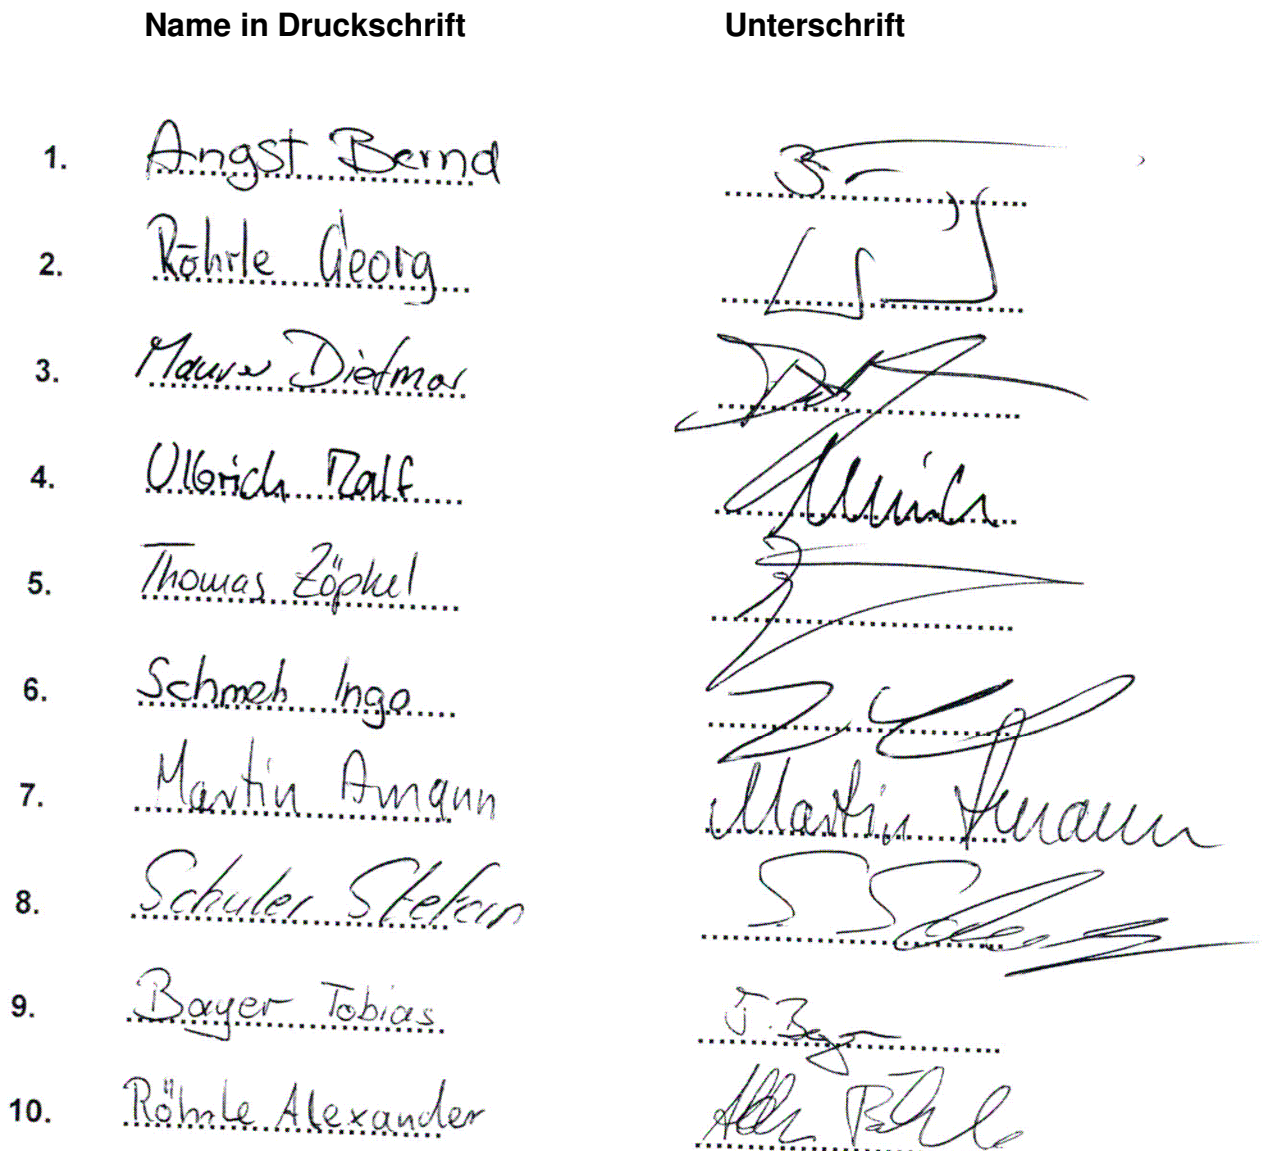 Name in Druckschrift Unterschrift
1. Angst Bernd
2. Röhrle Georg
3. Maurer Dietmar
4. Ullrich Ralf
5. Thomas Zöphel
6. Schmeh Ingo
7. Martin Amann Martin Amann
8. Schuler Stefan
9. Bayer Tobias T. Bayer
10. Röhrle Alexander